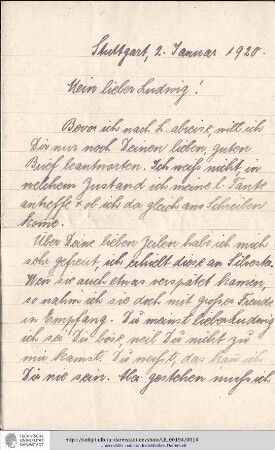 Stuttgart, 2. Januar 1920.
Mein lieber Ludwig!
Bevor ich nach L. abreise, will ich
Dir nur noch Deinen lieben, guten
Brief beantworten. Ich weiß nicht, in
welchem Zustand ich meine l. Tante
antreffe & ob ich da gleich am Schreiben
komme.
Über Deine lieben Zeilen habe ich mich
sehr gefreut, ich erhielt diese an Silvester.
Wenn sie auch etwas verspätet kamen,
so nahm ich sie doch mit großer Freude
in Empfang. Du meinst lieber Ludwig
ich sei Du böse, weil Du nicht zu
mir kamst. Du weißt, das kann ich
Dir nie sein. Aber gestehen muß ich
TECHNISCHE
UNIVERSITÄT
DARMSTADT
http://tudigit.ulb.tu-darmstadt.de/show/LB_00194/0014